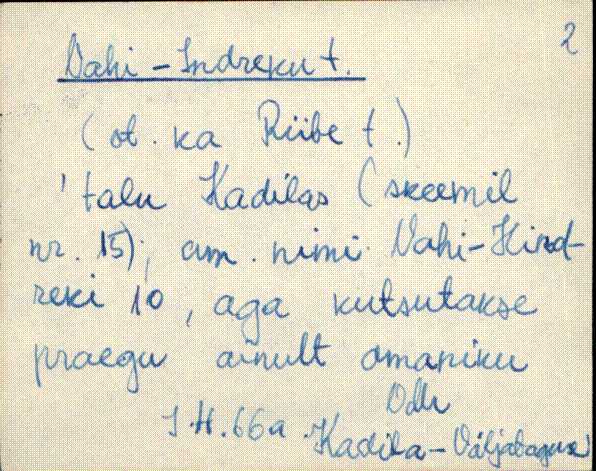 2
Vahi-Indreku t.
(vt. ka Riibe t.)
'talu Kadilas (skeemil
nr. 15); am. nimi Vahi-Hind-
reki 10, aga kutsutakse
praegu ainult omaniku
J.H. 66a. Kadila-Väljataguse